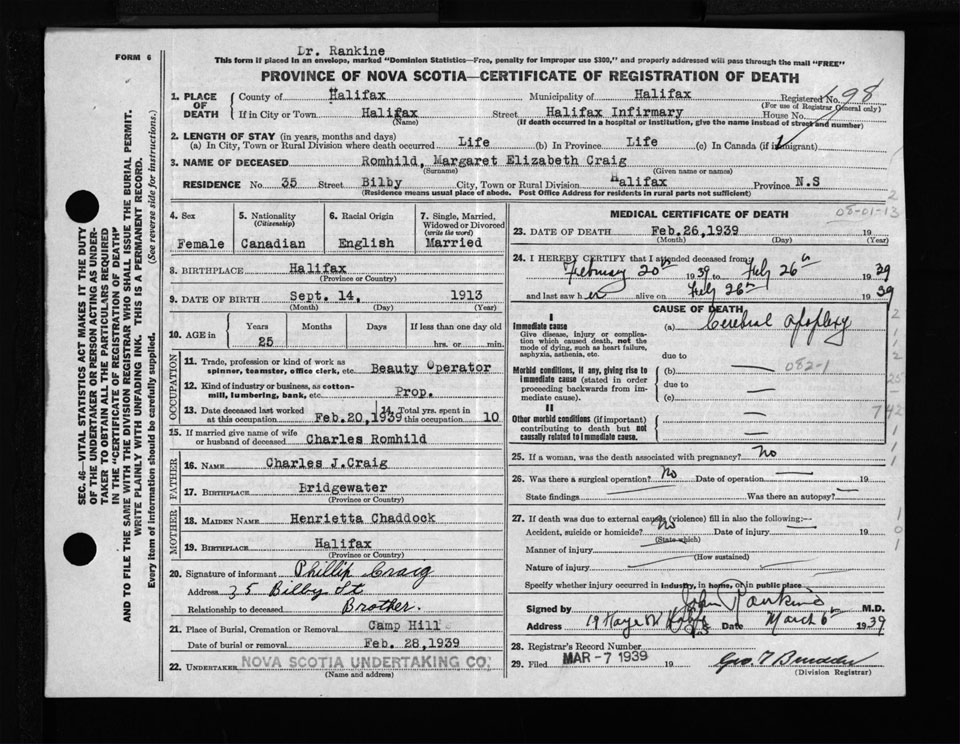 Dr. Rankine
FORM 6
This form if placed in an envelope, marked "Dominion Statistics—Free, penalty for improper use $300," and properly addressed will pass through the mail "FREE"
PROVINCE OF NOVA SCOTIA—CERTIFICATE OF REGISTRATION OF DEATH
SEC. 46—VITAL STATISTICS ACT MAKES IT THE DUTY
OF THE UNDERTAKER OR PERSON ACTING AS UNDER-
TAKER TO OBTAIN ALL THE PARTICULARS REQUIRED
IN THE "CERTIFICATE OF REGISTRATION OF DEATH"
AND TO FILE THE SAME WITH THE DIVISION REGISTRAR WHO SHALL ISSUE THE BURIAL PERMIT.
WRITE PLAINLY WITH UNFADING INK. THIS IS A PERMANENT RECORD.
Every item of information should be carefully supplied. (See reverse side for instructions.)
1. PLACE OF DEATH
County of Halifax Municipality of Halifax Registered No. 698
(For use of Registrar General only)
If in City or Town Halifax Street Halifax Infirmary House No.
(Name) (If death occurred in a hospital or institution, give the name instead of street and number)
2. LENGTH OF STAY (in years, months and days)
(a) In City, Town or Rural Division where death occurred Life (b) In Province Life (c) In Canada (if immigrant)
3. NAME OF DECEASED Romhild, Margaret Elizabeth Craig
(Surname) (Given name or names)
RESIDENCE No. 35 Street Bilby City, Town or Rural Division Halifax Province N.S
(Residence means usual place of abode. Post Office Address for residents in rural parts not sufficient)
4. Sex
Female
5. Nationality
(Citizenship)
Canadian
6. Racial Origin
English
7. Single, Married,
Widowed or Divorced
(write the word)
Married
8. BIRTHPLACE Halifax
(Province or Country)
9. DATE OF BIRTH Sept. 14, 1913
(Month) (Day) (Year)
10. AGE in
Years Months Days If less than one day old
25 hrs. or min.
OCCUPATION
11. Trade, profession or kind of work as
spinner, teamster, office clerk, etc. Beauty Operator
12. Kind of industry or business, as cotton-
mill, lumbering, bank, etc. Prop.
13. Date deceased last worked
at this occupation Feb.20,1939
14. Total yrs. spent in
this occupation 10
15. If married give name of wife
or husband of deceased Charles Romhild
FATHER
16. NAME Charles J.Craig
17. BIRTHPLACE Bridgewater
(Province or Country)
MOTHER
18. MAIDEN NAME Henrietta Chaddock
19. BIRTHPLACE Halifax
(Province or Country)
20. Signature of informant Phillip Craig
Address 35 Bilby St
Relationship to deceased Brother.
21. Place of Burial, Cremation or Removal Camp Hill
Date of burial or removal Feb. 28,1939
22. UNDERTAKER NOVA SCOTIA UNDERTAKING CO.
(Name and address)
MEDICAL CERTIFICATE OF DEATH
05-01-13
23. DATE OF DEATH Feb.26,1939 19
(Month) (Day) (Year)
24. I HEREBY CERTIFY that I attended deceased from
February 20th 1939 to Feby 26th 1939
and last saw her alive on Feby 26th 1939
CAUSE OF DEATH
I
Immediate cause
Give disease, injury or complica-
tion which caused death, not the
mode of dying, such as heart failure,
asphyxia, asthenia, etc.
(a) Cerebral apoplexy
due to
Morbid conditions, if any, giving rise to
immediate cause (stated in order
proceeding backwards from im-
mediate cause).
(b) 082-1
due to
(c)
II
Other morbid conditions (if important)
contributing to death but not
causally related to immediate cause.
742
25. If a woman, was the death associated with pregnancy? No
26. Was there a surgical operation? No Date of operation 19
State findings Was there an autopsy?
27. If death was due to external causes (violence) fill in also the following:—
Accident, suicide or homicide? No Date of injury 19
(State which)
Manner of injury
(How sustained)
Nature of injury
Specify whether injury occurred in industry, in home, or in public place
Signed by John Rankine M.D.
Address 19 Kaye St Date March 6th 1939
28. Registrar's Record Number
29. Filed MAR -7 1939 19
(Division Registrar)